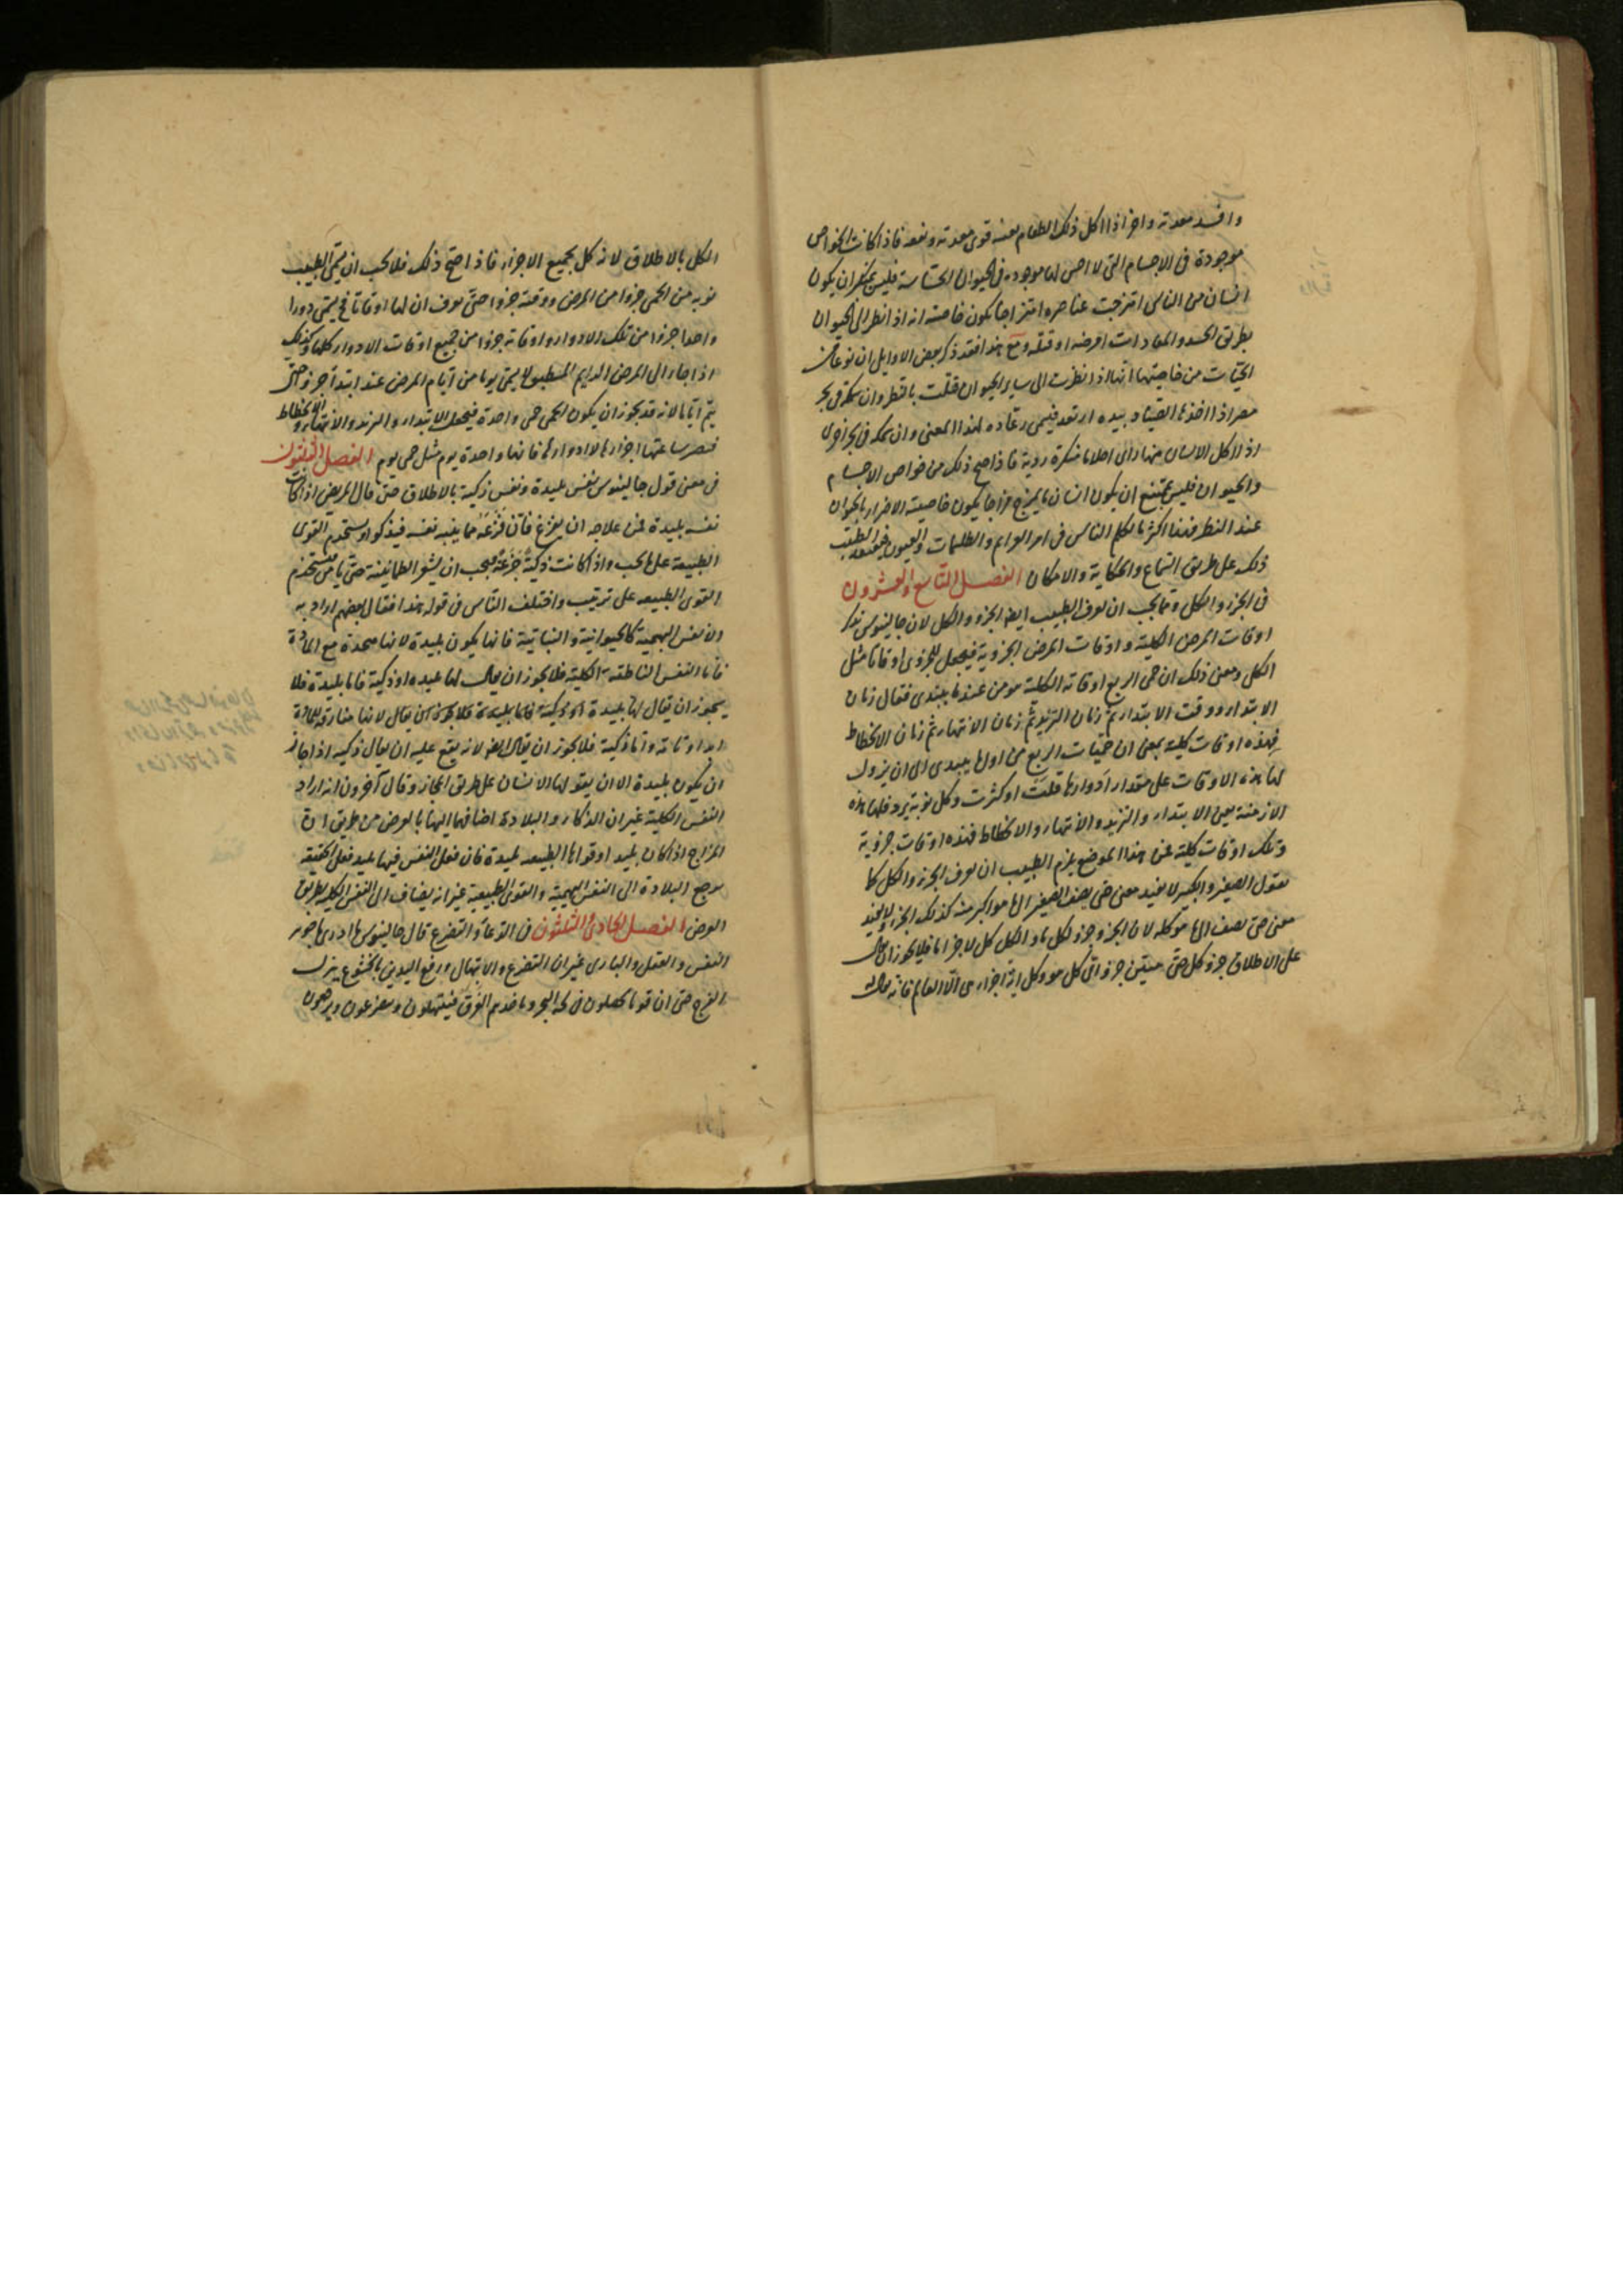 وافسد معدته واخر اذا اكل ذلك الطعام بعينه قوى معدته ونفعه فاذا كانت الخواص
موجودة فى الاجسام التى لا حس لها موجوده فى الحيوان الحساسة فليس بمنكر ان يكون
انسان من الناس امتزجت عناصره امتزاجا يكون خاصته انه اذا نظر الى الحيوان
بطريق الحسد والمعادات امرضه او قتله ومع هذا فقد ذكر بعض الاوايل ان نوعا من
الحيات من خاصيتها انها اذا نظرت الى ساير الحيوان قتلت باقطر وان سمكة فى بحر
مصر اذا اخذها الصياد بيده ارتعد فيسمى رعاده لهذا المعنى وان سمكه فى بحر اخرى
اذا اكل الانسان منها راى احلاما منكرة ردية فاذا صح ذلك من خواص الاجسام
والحيوان فليس بممتنع ان يكون انسان ما يمزج مزاجا يكون خاصيته الاضرار بالحيوان
عند النظر فهذا اكثر ما تكلم الناس فى امر العزايم والطلسمات والعيون الطبيب
ذلك على طريق السماع والحكاية والامكان الفصل التاسع والعشرون
فى الجزء والكل ومما يجب ان يعرف الطبيب ايضا الجزء والكل لان جالينوس يذكر
اوقات المرض الكلية واوقات المرض الجزوية فيجعل للجزوى اوقاتا مثل
الكل ومعنى ذلك ان حمى الربع اوقاته الكلية هو من عند ما يبتدى فقال زمان
الابتداء ووقت الابتداء ثم زمان التزيد ثم زمان الانتهاء ثم زمان الانحطاط
فهذه اوقات كلية بمعنى ان حميات الربع من اولها يبتدى الى ان يزول
لها هذه الاوقات على مقدار ادوارها قلت او كثرت وكل نوبة يرد فلها هذه
الازمنة يعنى الابتداء والتزيد والانتهاء والانحطاط فهذه اوقات جزوية
وتلك اوقات كلية فمن هذا الموضع يلزم الطبيب ان يعرف الجزء والكل كما
نقول الصغير والكبير لا يفيد معنى حتى يضف الصغير الى ما هو اكبر منه كذلك الجزء لا يفيد
معنى حتى يضف الى ما هو كله لان الجزء جزء لكل ما والكل كل لاجزاء ما فلا يجوز ان يقال
على الاطلاق جزء كل حتى يتبين جزء اى كل هو وكل اية اجزاء هى الا العالم فانه يقال له
الكل بالاطلاق لانه كل بجميع الاجزاء فاذا صح ذلك فلا يجب ان يسمى الطبيب
نوبه من الحمى جزوا من المرض ووقته جزوا حتى يعرف ان لها اوقاتا فح يسمى دورا
واحدا جزوا من تلك الادوار واوقاته جزوا من جميع اوقات الادوار كلها وكذلك
اذا جاء الى المرض الدايم المطبق لا يسمى يوما من ايام المرض عند ابتدا جزو حتى
يتم اياما لانه قد يجوز ان يكون الحمى حمى واحدة فيجعل الابتداء والتزيد والانتهاء والانحطاط
فتصير ساعتها اجزاءها لا ادوارها فانها واحدة يوم مثل حمى يوم الفصل الثلثون
فى معنى قول جالينوس نفس بليدة ونفس ذكية بالاطلاق حتى قال المريض اذا كانت
نفسه بليدة فمن علاجه ان يفزع فان فزعه مما ينبه نفسه فيذكو او يستخدم القوى
الطبيعة على ما يجب واذا كانت ذكية جزعة فيجب ان يشعر الطمانينة حتى يستخدم
القوى الطبيعه على ترتيب واختلف الناس فى قوله هذا فقال بعضهم اراد به
الانفس البهيمية كالحيوانية والنباتية فانها يكون بليدة لانها متحدة مع المادة
فاما النفس الناطقة الكلية فلا يجوز ان يقال لها بليده او ذكية فاما بليدة فلا
يجوز ان يقال لها بليدة لانها مفارقة للمادة
واما ذكية فلا يجوز ان يقال ايضا لانه يقع عليه ان يقال ذكيه اذا جاز
ان يكون بليدة الا ان يقولها الانسان على طريق المجاز وقال آخرون انه اراد
النفس الكلية غير ان الذكاء والبلادة اضافها اليها بالعرض من طريق ان
المزاج اذا كان بليد او قواها الطبيعه بليدة فان فعل النفس فيها بليد فعلى الحقيقه
يرجع البلادة الى النفس البهيمية والقوى الطبيعية غير انه يضاف الى النفس الكليه بطريق
العرض الفصل الحادى والثلثون فى الدعا والتضرع قال جالينوس ما ادرى ما جوهر
النفس والعقل والبارى غير ان التضرع والابتهال ورفع اليدين بالخشوع ينزل
الفرج حتى ان قوما يحصلون فى لجة البحر وياخذهم الغرق فيبتهلون ويتضرعون ويرحمون